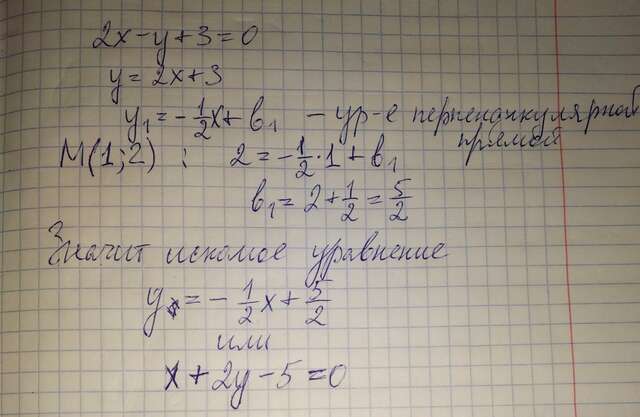 2x-y+3=0
y=2x+3
y₁=-1/2x+b₁ - ур-е перпендикулярной прямой
M(1;2) : 2=-1/2·1+b₁
b₁=2+1/2=5/2
Значит искомое уравнение
y=-1/2x+5/2
или
x+2y-5=0